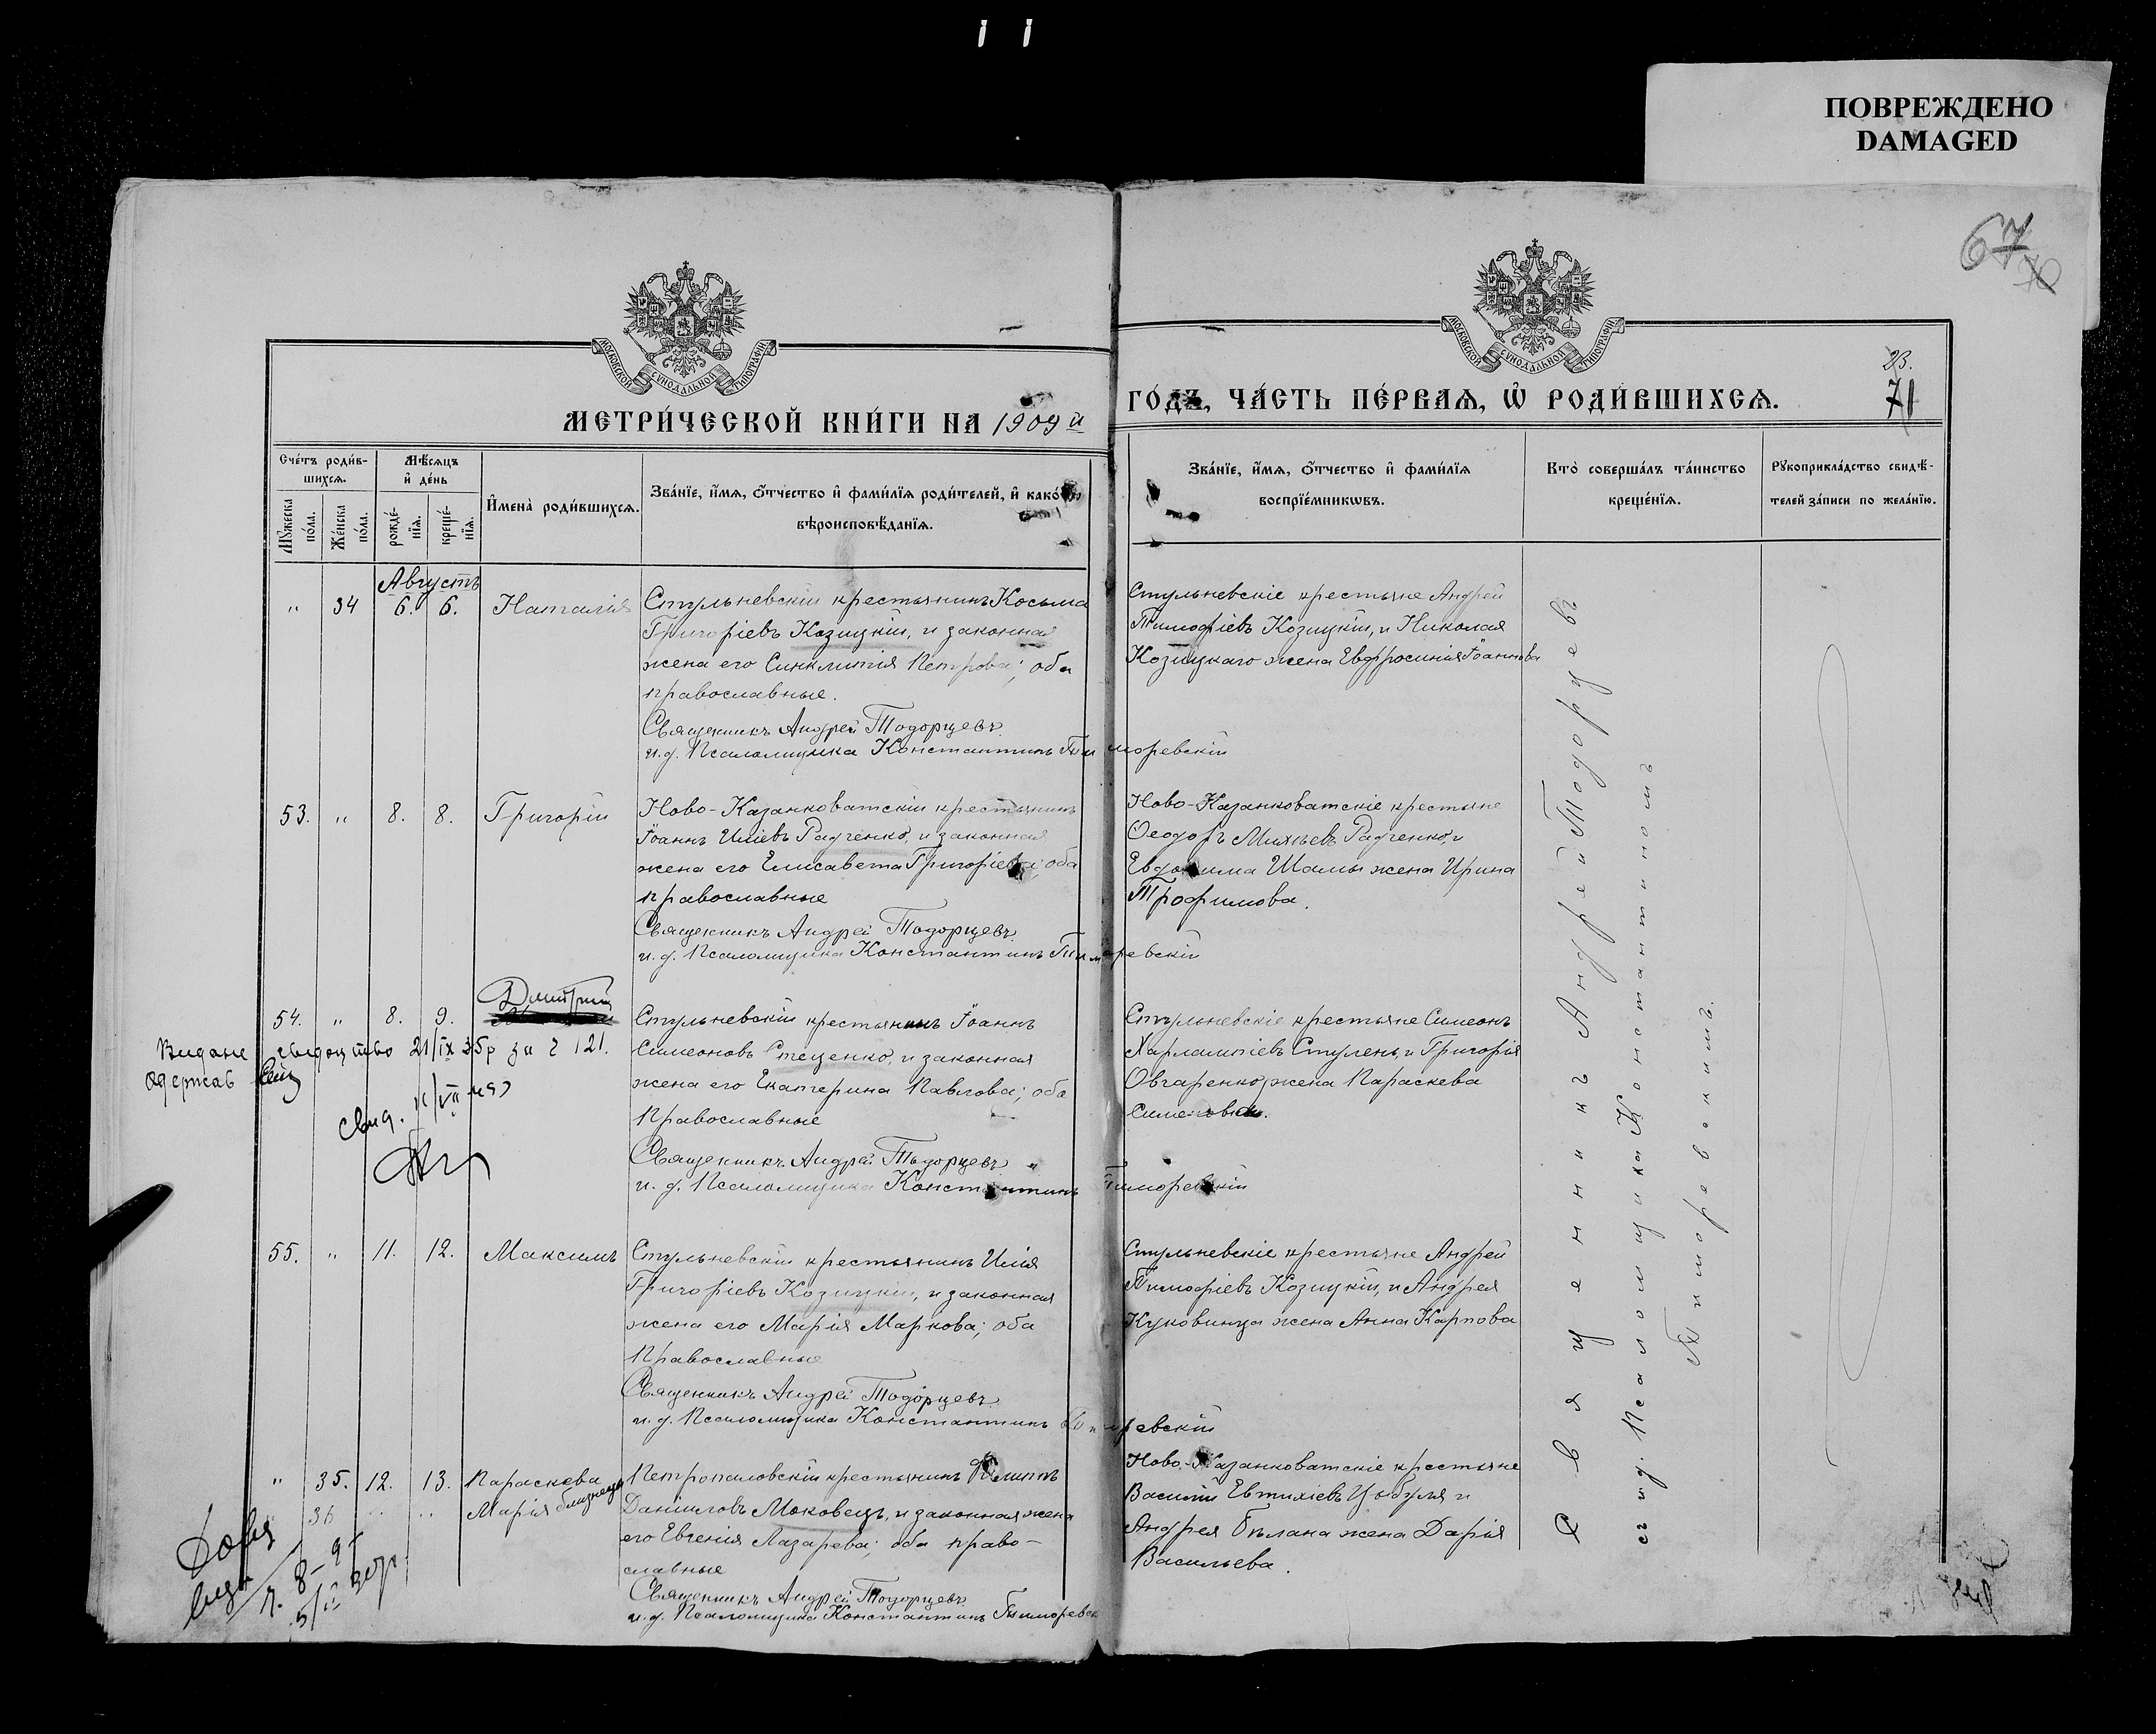 ПОВРЕЖДЕНО
DAMAGED
67
70
МОСКОВСКОЙ СУНОДАЛЬНОЙ ТИПОГРАФІИ
МОСКОВСКОЙ СУНОДАЛЬНОЙ ТИПОГРАФІИ
23.
71
МЕТРИ́ЧЕСКОЙ КНИ́ГИ НА 1909 й
ГО́ДЪ, ЧА́СТЬ ПЕ́РВАѦ, Ѡ҆ РОДИ́ВШИХСѦ.
Сче́тъ роди́в-
шихсѧ.
Мꙋ́жеска по́ла.
Же́нска по́ла.
Мѣ́сѧцъ
и҆ де́нь
рожде́-
нїѧ.
креще́-
нїѧ.
И҆мена̀ роди́вшихсѧ.
Зва́нїе, и҆́мѧ, ѻ҆́тчество и҆ фами́лїѧ роди́телей, и҆ како́гѡ
вѣроисповѣ́данїѧ.
Зва́нїе, и҆́мѧ, ѻ҆́тчество и҆ фами́лїѧ
воспрїе́мникѡвъ.
Кто̀ соверша́лъ та́инство
креще́нїѧ.
Рꙋкоприкла́дство свидѣ́-
телей за́писи по жела́нїю.
Августъ
" 34 6. 6. Наталія
Стульневскій крестьянинъ Косьма
Григоріевъ Козицкій, и законная
жена его Синклитія Петрова; оба
православные.
Священникъ Андрей Тодорцевъ
и. д. Псаломщика Константинъ Тиморевскій
Стульневскіе крестьяне Андрей
Тимофіевъ Козицкій, и Николая
Козицкаго жена Евфросинія Іоаннова
53. " 8. 8. Григорій
Ново-Казанковатскій крестьянинъ
Іоаннъ Иліевъ Радченко, и законная
жена его Елисавета Григоріева; оба
православные
Священникъ Андрей Тодорцевъ
и. д. Псаломщика Константинъ Тиморевскій
Ново-Казанковатскіе крестьяне
Ѳеодоръ Михѣевъ Радченко, и
Евдокима Шамы жена Ирина
Трофимова.
54. " 8. 9. Дмитрий
Стульневскій крестьянинъ Іоаннъ
Симеоновъ Стеценко, и законная
жена его Екатерина Павлова; оба
Православные
Священникъ Андрей Тодорцевъ
и. д. Псаломщика Константинъ Тиморевскій
Стульневскіе крестьяне Симеонъ
Харлампіевъ Стулень, и Григорія
Овчаренко жена Параскева
Симеонова.
Видане свидоцтво 21/IX 35р за č 121.
одержав
свид.
55. " 11. 12. Максимъ
Стульневскій крестьянинъ Илія
Григоріевъ Козицкій, и законная
жена его Марія Маркова; оба
Православные
Священникъ Андрей Тодорцевъ
и. д. Псаломщика Константинъ Тиморевскій
Стульневскіе крестьяне Андрей
Тимофіевъ Козицкій, и Андрея
Куковинца жена Анна Карпова
" 35. 12. 13. Параскева
36 " " Марія близнецы
Петропаловскій крестьянинъ Филиппъ
Даніиловъ Моковецъ, и законная жена
его Евгенія Лазарева; оба право-
славные
Священникъ Андрей Тодорцевъ
и. д. Псаломщика Константинъ Тиморевск
Ново-Казанковатскіе крестьяне
Василій Евтихіевъ Цыбуля и
Андрея Бѣлана жена Дарія
Васильева.
Священникъ Андрей Тодорцевъ
съ и. д. Псаломщика Константиномъ
Тиморевскимъ.